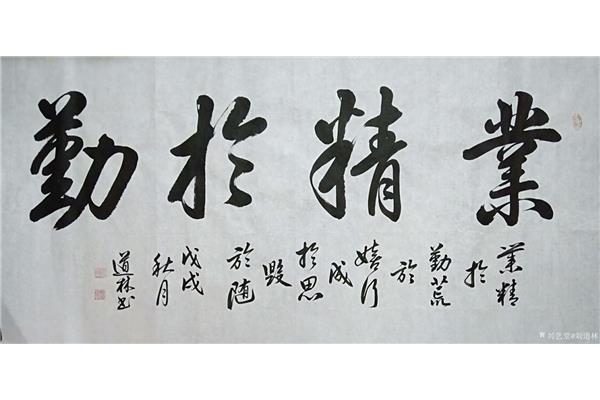 業精於勤
業精
於
勤荒
於
嬉行
成
於思
毁
於随
戊戌
秋月
道林书
兴艺堂@刘道林